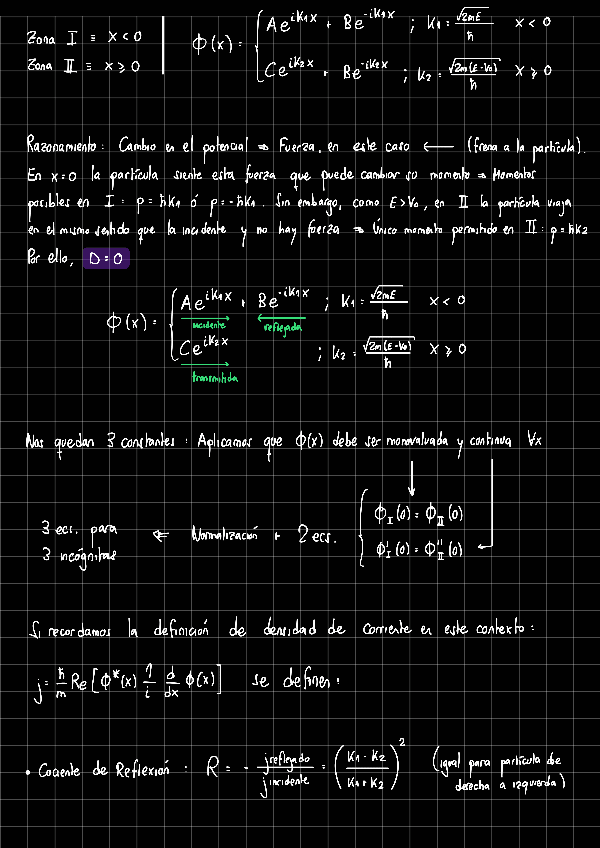 Zona I ≡ x < 0
Zona II ≡ x ⩾ 0
ϕ(x) = { Ae^{ik₁x} + Be^{-ik₁x} ; k₁ = √(2mE)/ħ x < 0
Ce^{ik₂x} + Be^{-ik₂x} ; k₂ = √(2m(E-V₀))/ħ x ⩾ 0
Razonamiento: Cambio en el potencial ⇒ Fuerza, en este caso ⟵ (frena a la partícula).
En x=0 la partícula siente esta fuerza que puede cambiar su momento ⇒ Momentos
posibles en I: p = ħk₁ ó p = -ħk₁. Sin embargo, como E>V₀, en II la partícula viaja
en el mismo sentido que la incidente y no hay fuerza ⇒ Único momento permitido en II: p = ħk2
Por ello, D=0
ϕ(x) = { Ae^{ik₁x} + Be^{-ik₁x} ; k₁ = √(2mE)/ħ x < 0
incidente reflejada
Ce^{ik₂x} ; k₂ = √(2m(E-V₀))/ħ x ⩾ 0
transmitida
Nos quedan 3 constantes: Aplicamos que ϕ(x) debe ser monovaluada y continua ∀x
3 ecs. para
3 incógnitas
⇐ Normalización + 2 ecs. { ϕ_I(0) = ϕ_II(0)
ϕ'_I(0) = ϕ''_II(0)
Si recordamos la definición de densidad de corriente en este contexto:
j = ħ/m Re[ϕ*(x) 1/i d/dx ϕ(x)] se definen:
• Cociente de Reflexión: R = - j_{reflejado}/j_{incidente} = ((k₁-k₂)/(k₁+k₂))² (igual para partícula de
derecha a izquierda)